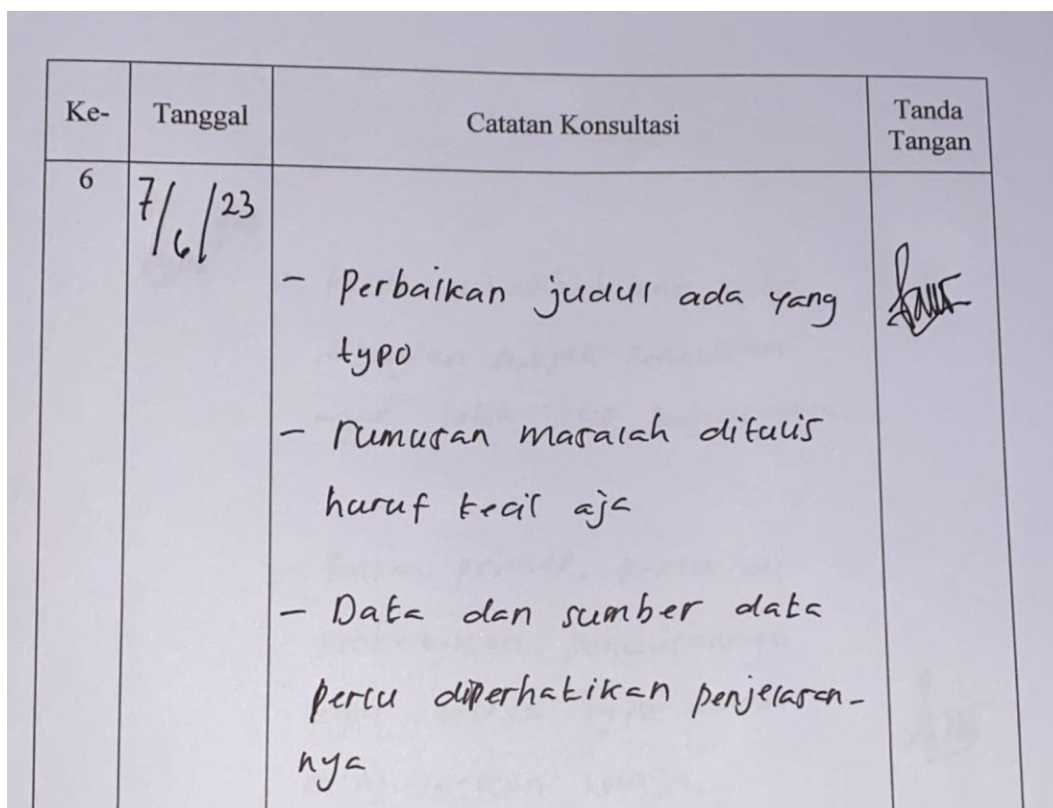 Ke- Tanggal Catatan Konsultasi Tanda
Tangan
6 7/6/23
- Perbaikan judul ada yang
typo
- rumusan masalah ditulis
huruf kecil aja
- Data dan sumber data
perlu diperhatikan penjelasan-
nya